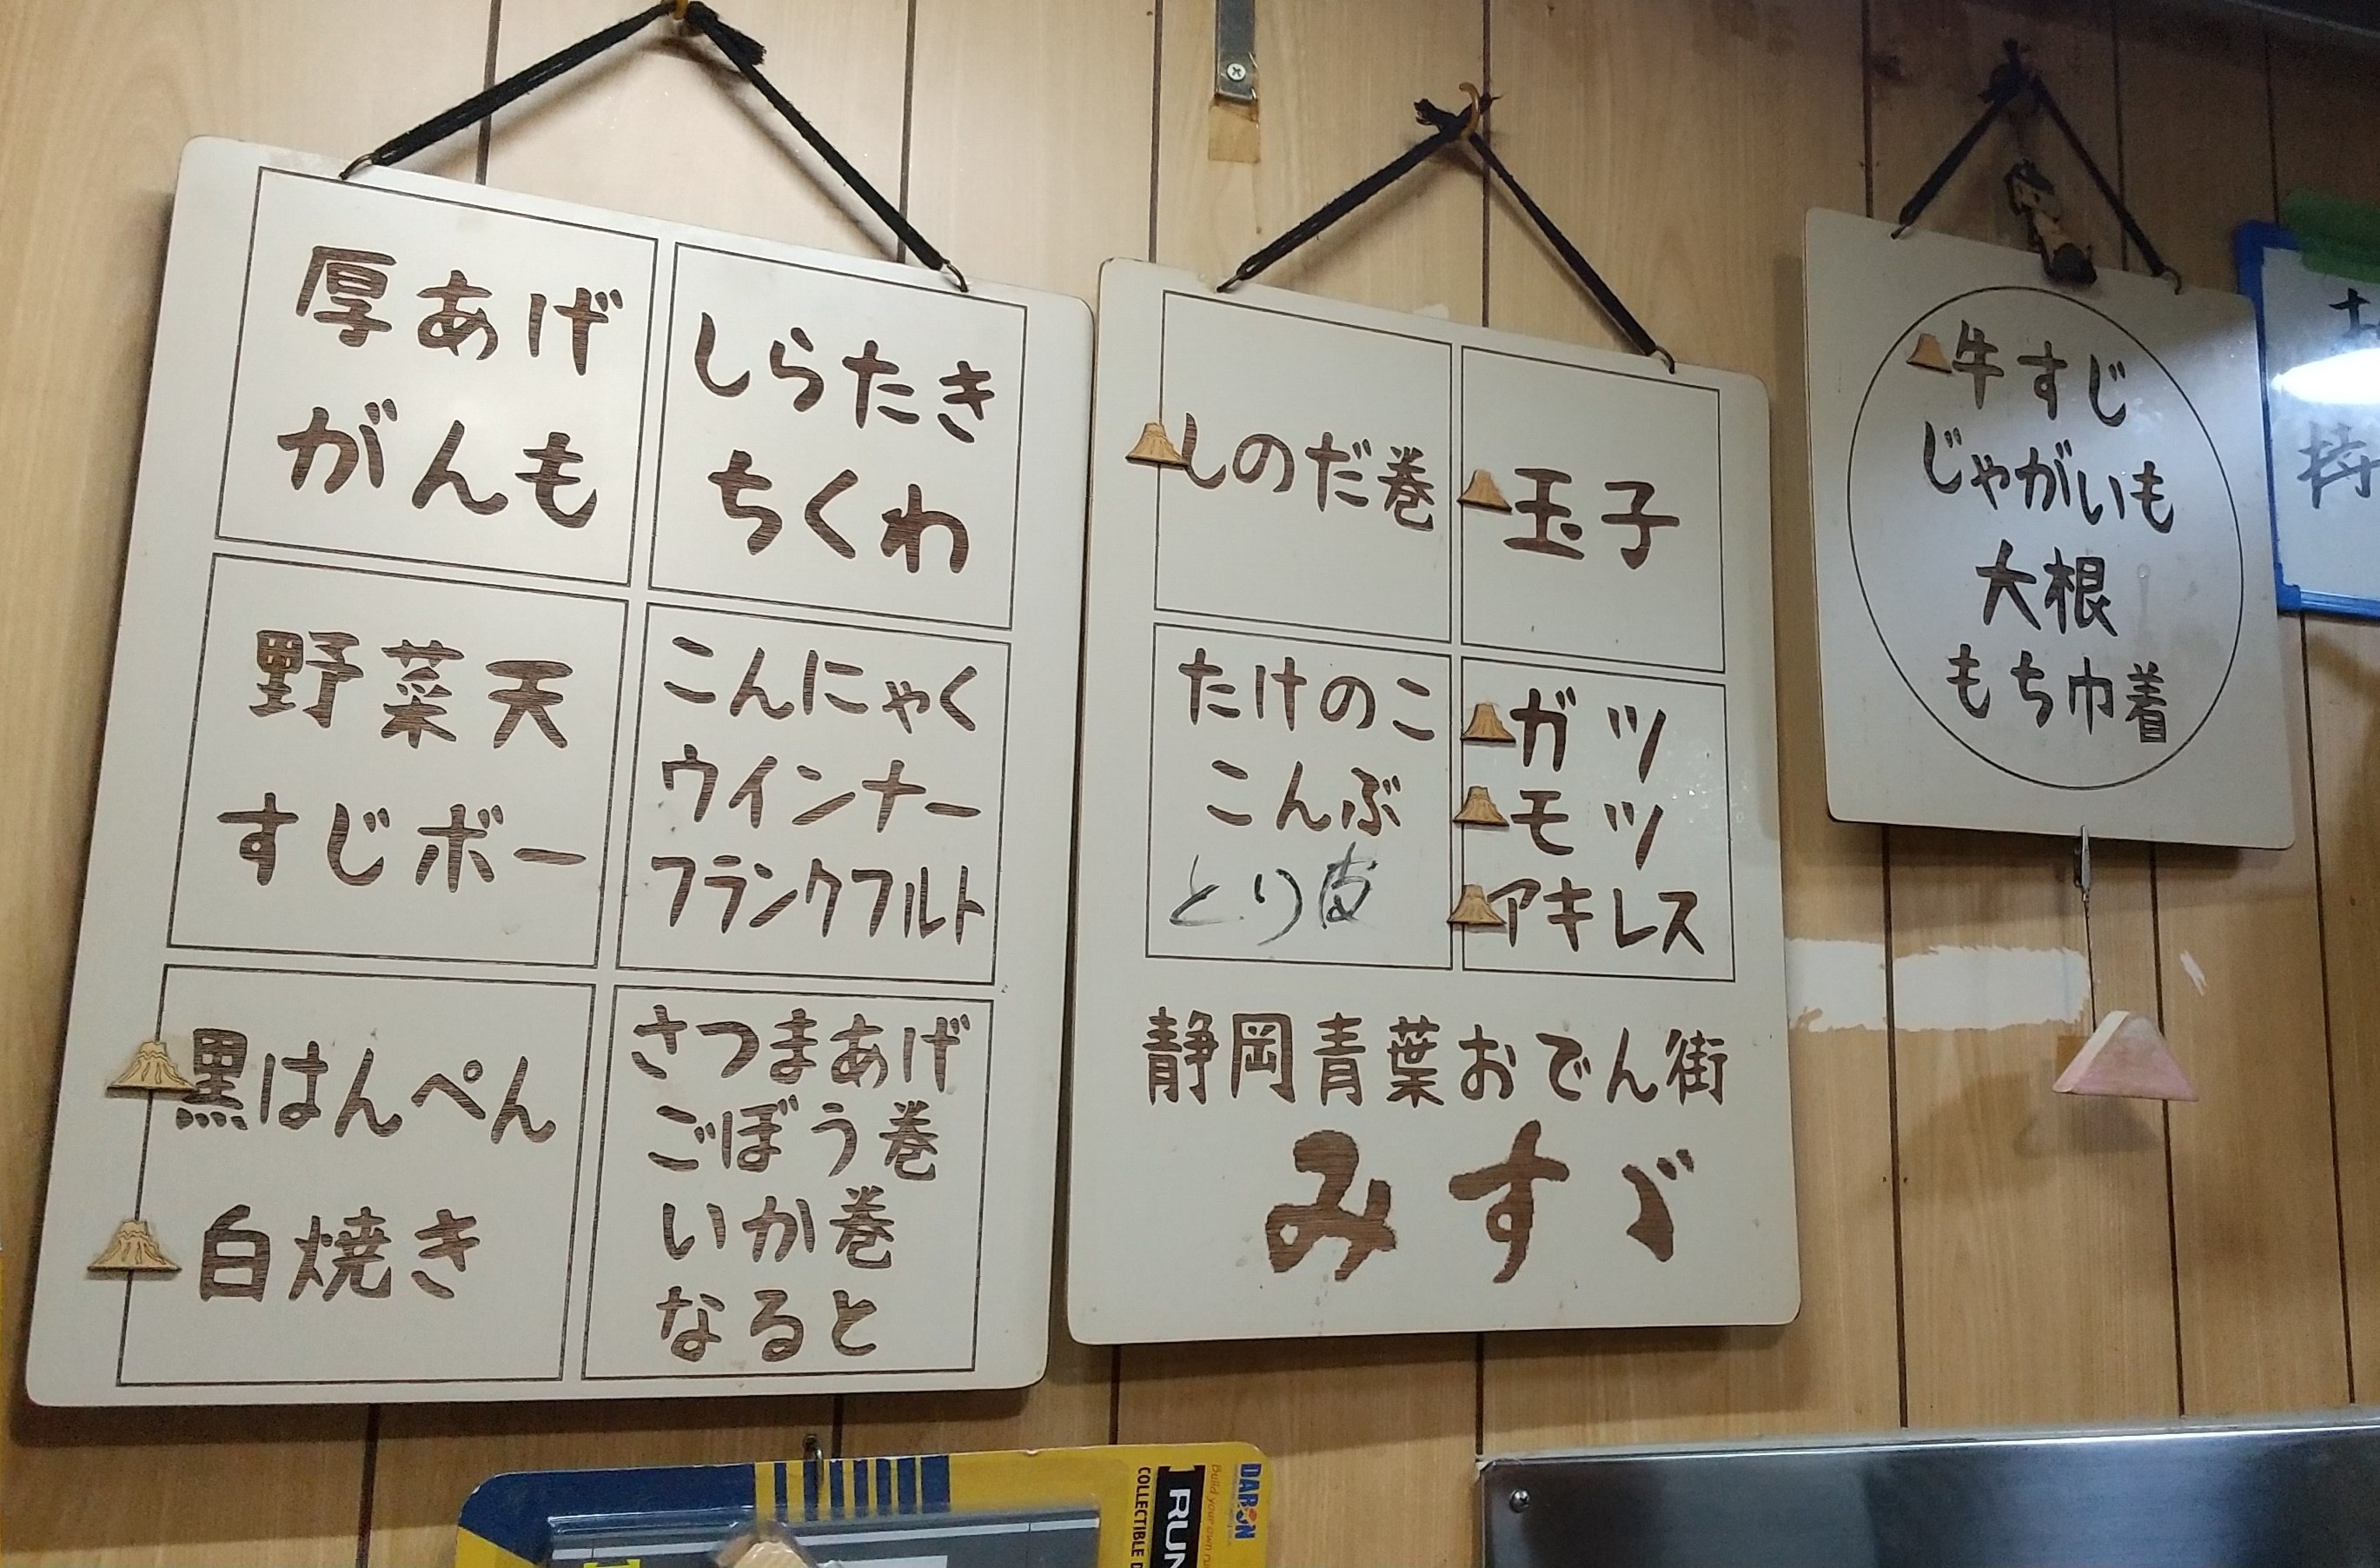 厚あげ
がんも
しらたき
ちくわ
野菜天
すじボー
こんにゃく
ウインナー
フランクフルト
黒はんぺん
白焼き
さつまあげ
ごぼう巻
いか巻
なると
しのだ巻
玉子
たけのこ
こんぶ
とり皮
ガツ
モツ
アキレス
静岡青葉おでん街
みすゞ
牛すじ
じゃがいも
大根
もち巾着
持
DARON
Build your own
RUN
COLLECTIBLE